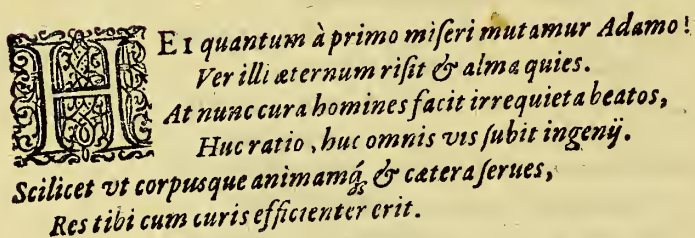 HEI quantum à primo miſeri mutamur Adamo!
Ver illi æternum riſit & alma quies.
At nunc cura homines facit irrequieta beatos,
Huc ratio, huc omnis vis ſubit ingenij.
Scilicet vt corpusque animamq́ꝫ & cætera ſerues,
Res tibi cum curis efficienter erit.